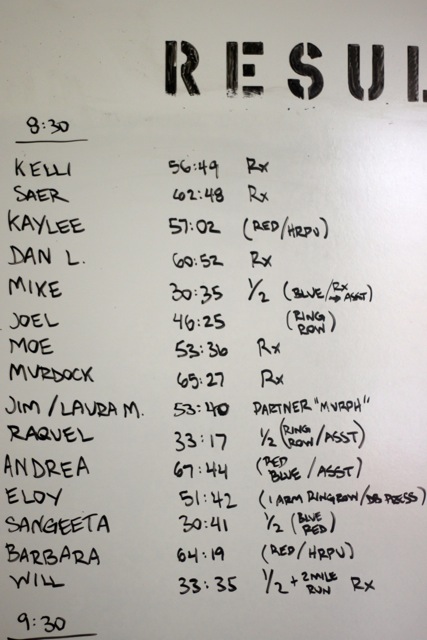 RESUL
8:30
KELLI 56:49 Rx
SAER 62:48 Rx
KAYLEE 57:02 (RED/HRPU)
DAN L. 60:52 Rx
MIKE 30:35 1/2 (BLUE/Rx → ASST)
JOEL 46:25 (RING ROW)
MOE 53:36 Rx
MURDOCK 65:27 Rx
JIM/LAURA M. 53:40 PARTNER "MURPH"
RAQUEL 33:17 1/2 (RING ROW/ASST)
ANDREA 67:44 (RED BLUE/ASST)
ELOY 51:42 (1 ARM RING ROW/DB PRESS)
SANGEETA 30:41 1/2 (BLUE RED)
BARBARA 64:19 (RED/HRPU)
WILL 33:35 1/2 + 2 MILE RUN Rx
9:30